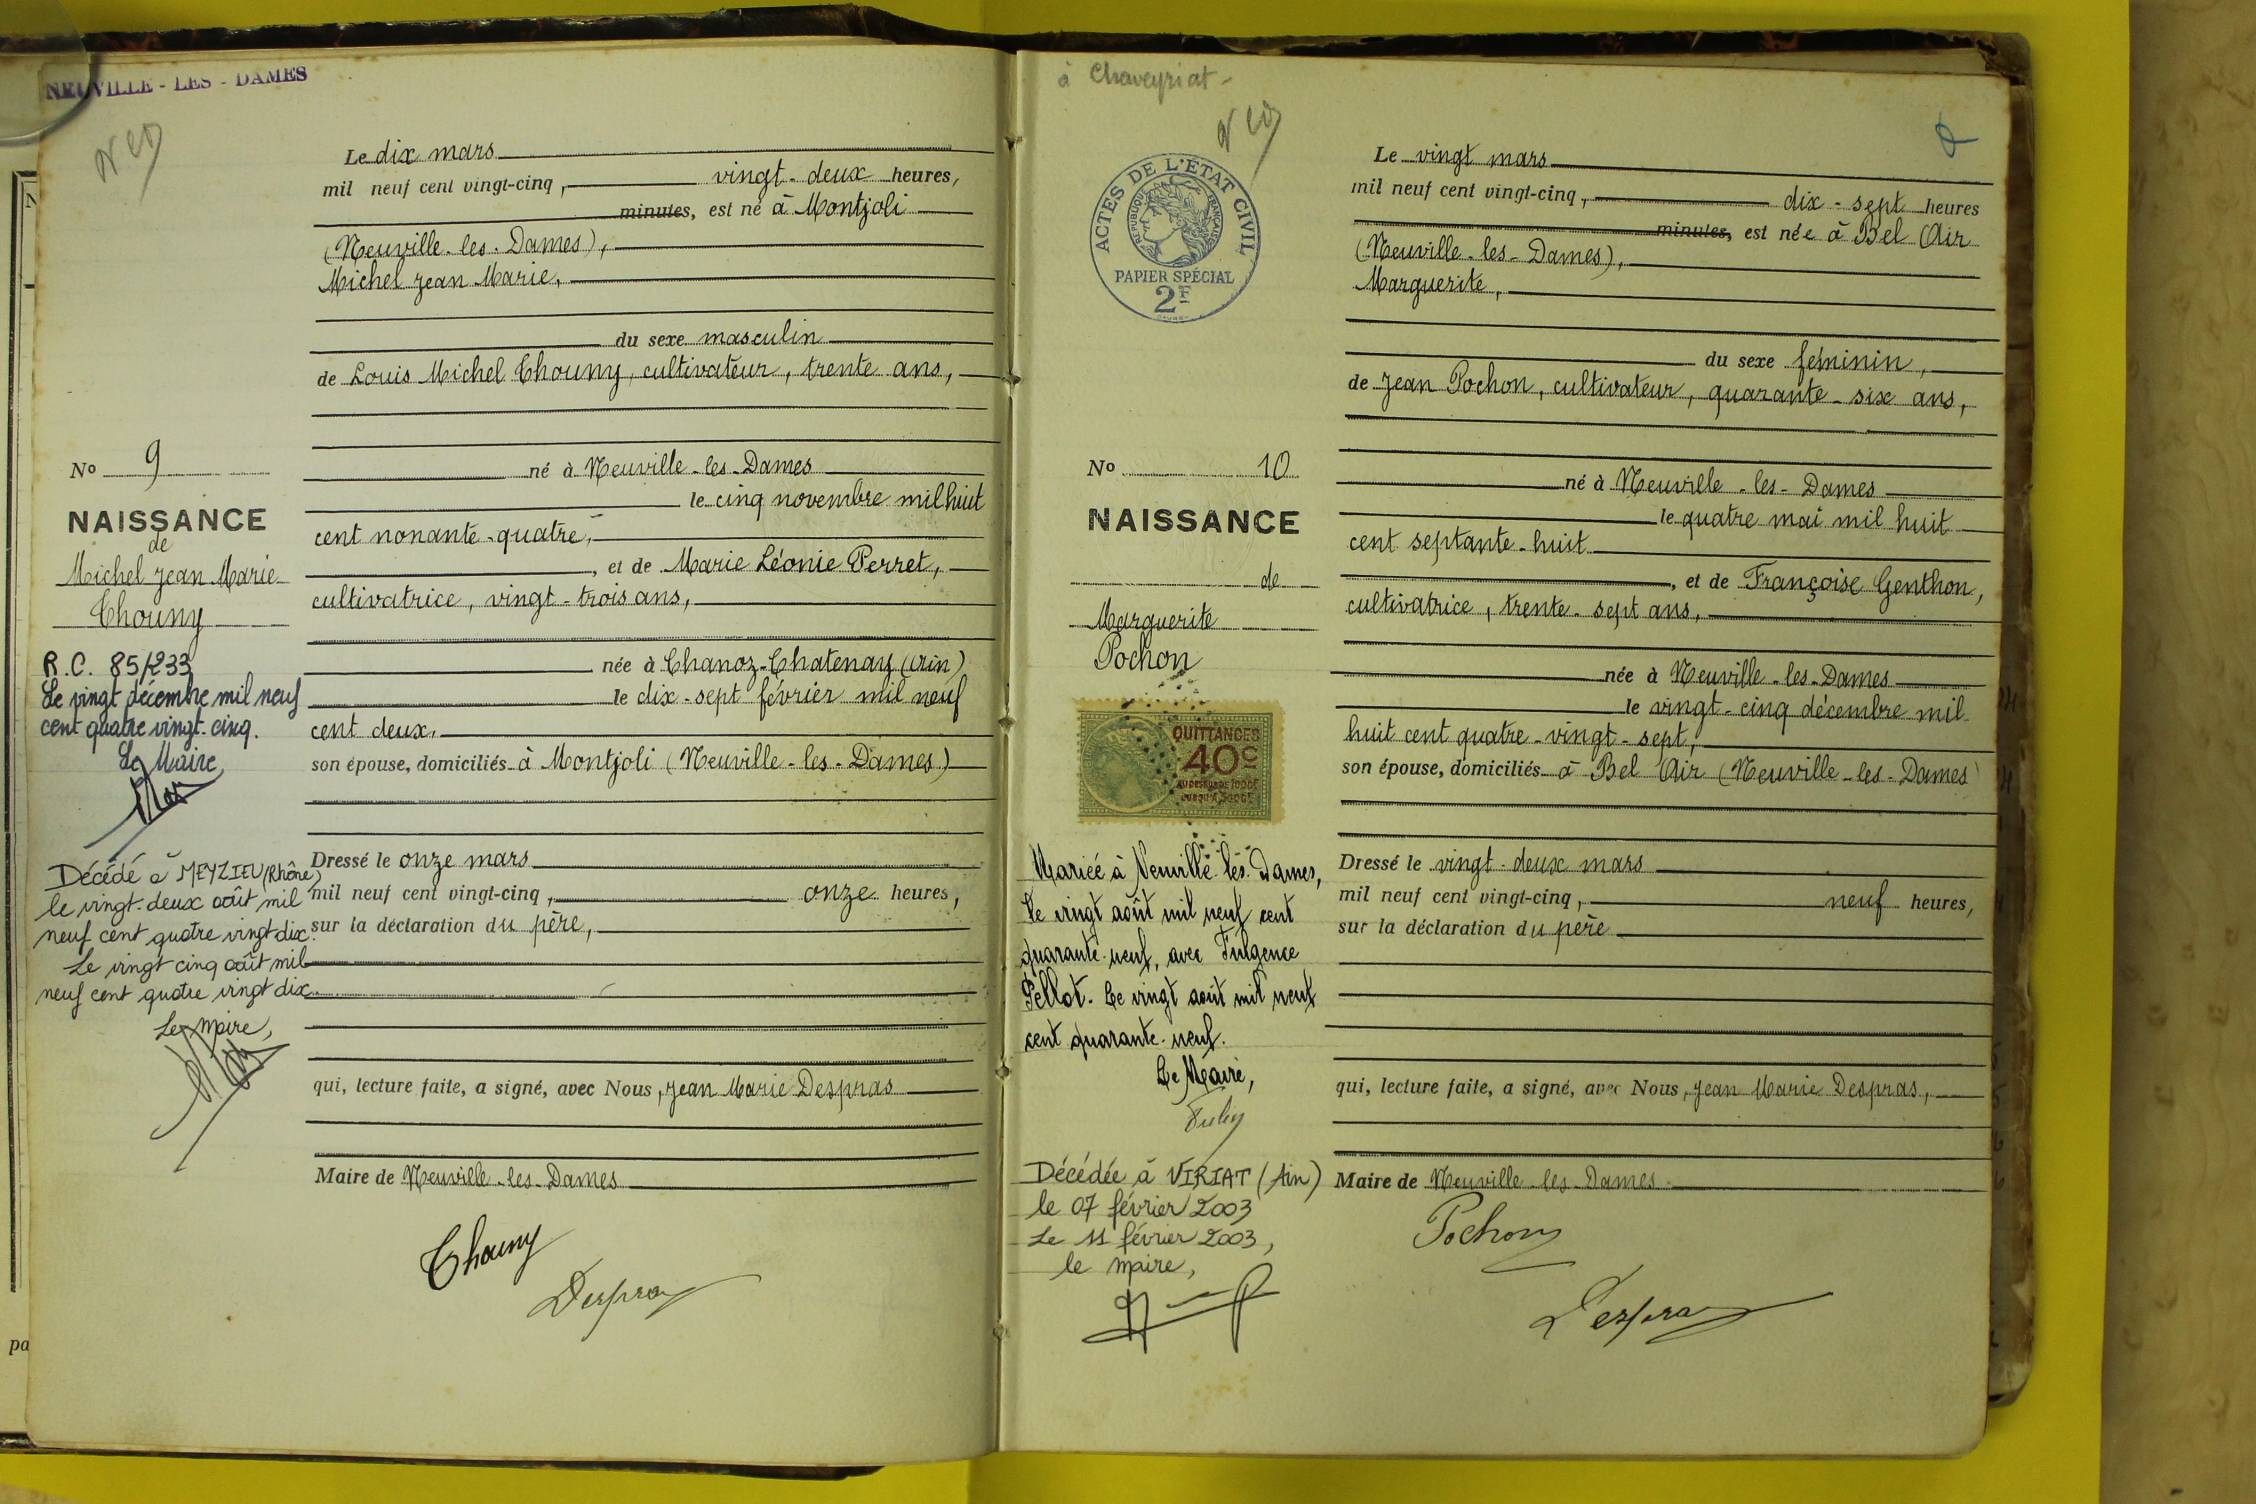 NEUVILLE - LES - DAMES
Le dix mars
mil neuf cent vingt-cinq, vingt-deux heures,
minutes, est né à Montjoli
(Neuville-les-Dames),
Michel Jean Marie,
du sexe masculin
de Louis Michel Chouny, cultivateur, trente ans,
né à Neuville-les-Dames
le cinq novembre mil huit
cent nonante-quatre,
, et de Marie Léonie Perret,
cultivatrice, vingt-trois ans,
née à Chanoz-Chatenay (Ain)
le dix-sept février mil neuf
cent deux,
son épouse, domiciliés à Montjoli (Neuville-les-Dames)
Dressé le onze mars
mil neuf cent vingt-cinq, onze heures,
sur la déclaration du père,
qui, lecture faite, a signé, avec Nous, Jean Marie Despras
Maire de Neuville-les-Dames
Chouny
Despras
No 9
NAISSANCE
de
Michel Jean Marie
Chouny
R.C. 85/233
Le vingt décembre mil neuf
cent quatre vingt-cinq.
Le Maire,
Décédé à MEYZIEU (Rhône)
le vingt-deux août mil
neuf cent quatre vingt dix.
Le vingt cinq août mil
neuf cent quatre vingt dix.
Le Maire,
pa
à Chaveyriat -
ACTES DE L'ÉTAT CIVIL
RÉPUBLIQUE FRANÇAISE
PAPIER SPÉCIAL
2F
Le vingt mars
mil neuf cent vingt-cinq, dix-sept heures
minutes, est née à Bel Air
(Neuville-les-Dames),
Marguerite,
du sexe féminin,
de Jean Pochon, cultivateur, quarante-six ans,
né à Neuville-les-Dames
le quatre mai mil huit
cent septante-huit
, et de Françoise Genthon,
cultivatrice, trente-sept ans,
née à Neuville-les-Dames
le vingt-cinq décembre mil
huit cent quatre-vingt-sept,
son épouse, domiciliés à Bel Air (Neuville-les-Dames)
Dressé le vingt-deux mars
mil neuf cent vingt-cinq, neuf heures,
sur la déclaration du père
qui, lecture faite, a signé, avec Nous, Jean Marie Despras,
Maire de Neuville-les-Dames
Pochon
Despras
No 10
NAISSANCE
de
Marguerite
Pochon
QUITTANCES
40c
Mariée à Neuville-les-Dames,
le vingt août mil neuf cent
quarante-neuf, avec Fulgence
Pellot. Le vingt août mil neuf
cent quarante-neuf.
Le Maire,
Décédée à VIRIAT (Ain)
le 07 février 2003
Le 11 février 2003,
le maire,